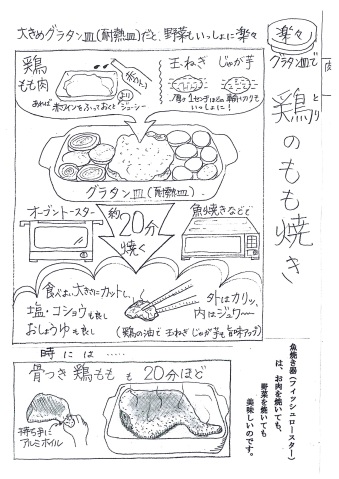 楽々
グラタン皿で
肉
鶏のもも焼き
とり
大きめグラタン皿(耐熱皿)だと、野菜もいっしょに楽々
鶏もも肉
赤ワイン
あれば
赤ワインをふっておくとジューシー
玉ねぎ じゃが芋
厚さ1センチほどの輪切りにして
いっしょに!
グラタン皿(耐熱皿)
オーブントースター
約20分焼く
魚焼きなどで
食べよい大きさにカットし、
塩・コショウも良し
おしょうゆも良し
外はカリッ、
内はジュワ〜
(鶏の油で玉ねぎじゃが芋も旨味アップ)
時には……
骨つき鶏ももも20分ほど
持ち手に
アルミホイル
魚焼き器(フィッシュロースター)
は、お肉を焼いても、
野菜を焼いても
美味しいのです。